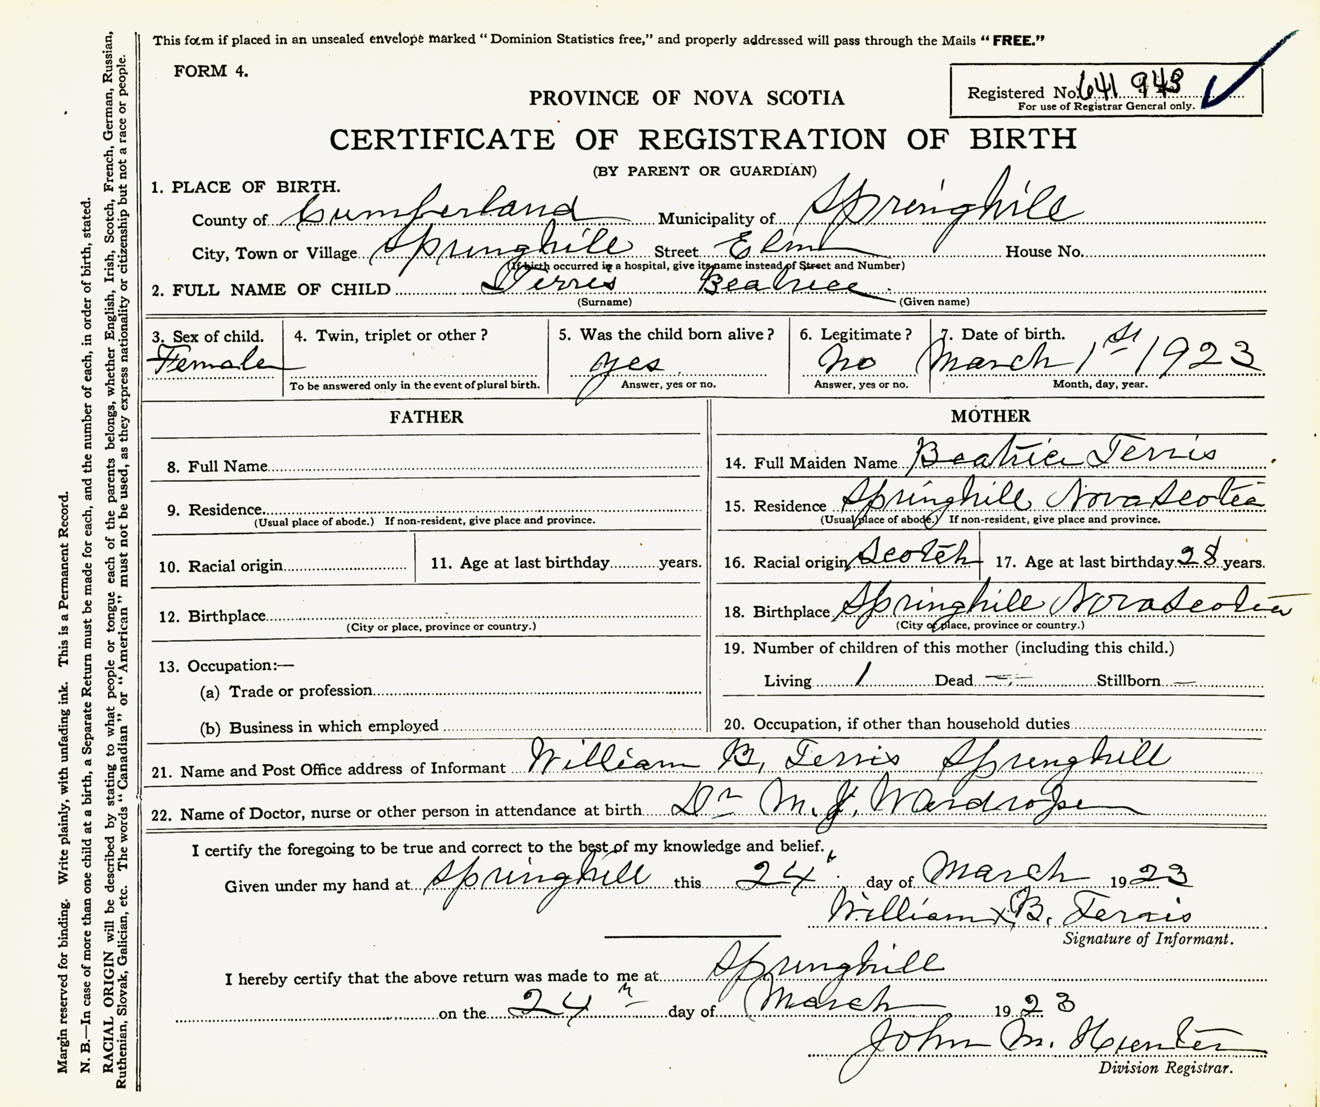 This form if placed in an unsealed envelope marked “Dominion Statistics free,” and properly addressed will pass through the Mails “FREE.”
FORM 4.
Registered No. 641 943
For use of Registrar General only.
PROVINCE OF NOVA SCOTIA
CERTIFICATE OF REGISTRATION OF BIRTH
(BY PARENT OR GUARDIAN)
1. PLACE OF BIRTH.
County of Cumberland Municipality of Springhill
City, Town or Village Springhill Street Elm House No.
(If birth occurred in a hospital, give its name instead of Street and Number)
2. FULL NAME OF CHILD Terris Beatrice
(Surname) (Given name)
3. Sex of child. 4. Twin, triplet or other? 5. Was the child born alive? 6. Legitimate? 7. Date of birth.
Female yes no March 1st 1923
To be answered only in the event of plural birth. Answer, yes or no. Answer, yes or no. Month, day, year.
FATHER
8. Full Name
9. Residence
(Usual place of abode.) If non-resident, give place and province.
10. Racial origin 11. Age at last birthday years.
12. Birthplace
(City or place, province or country.)
13. Occupation:—
(a) Trade or profession
(b) Business in which employed
MOTHER
14. Full Maiden Name Beatrice Terris
15. Residence Springhill Nova Scotia
(Usual place of abode.) If non-resident, give place and province.
16. Racial origin Scotch 17. Age at last birthday 28 years.
18. Birthplace Springhill Nova Scotia
(City or place, province or country.)
19. Number of children of this mother (including this child.)
Living 1 Dead — Stillborn —
20. Occupation, if other than household duties
21. Name and Post Office address of Informant William B. Terris Springhill
22. Name of Doctor, nurse or other person in attendance at birth Dr M. J. Wardrope
I certify the foregoing to be true and correct to the best of my knowledge and belief.
Given under my hand at Springhill this 24th day of March 1923
William X B. Terris
Signature of Informant.
I hereby certify that the above return was made to me at Springhill
on the 24th day of March 1923
John M. Hunter
Division Registrar.
Margin reserved for binding. Write plainly, with unfading ink. This is a Permanent Record.
N. B.—In case of more than one child at a birth, a Separate Return must be made for each, and the number of each, in order of birth, stated.
RACIAL ORIGIN will be described by stating to what people or tongue each of the parents belongs, whether English, Irish, Scotch, French, German, Russian,
Ruthenian, Slovak, Galician, etc. The words “Canadian” or “American” must not be used, as they express nationality or citizenship but not a race or people.